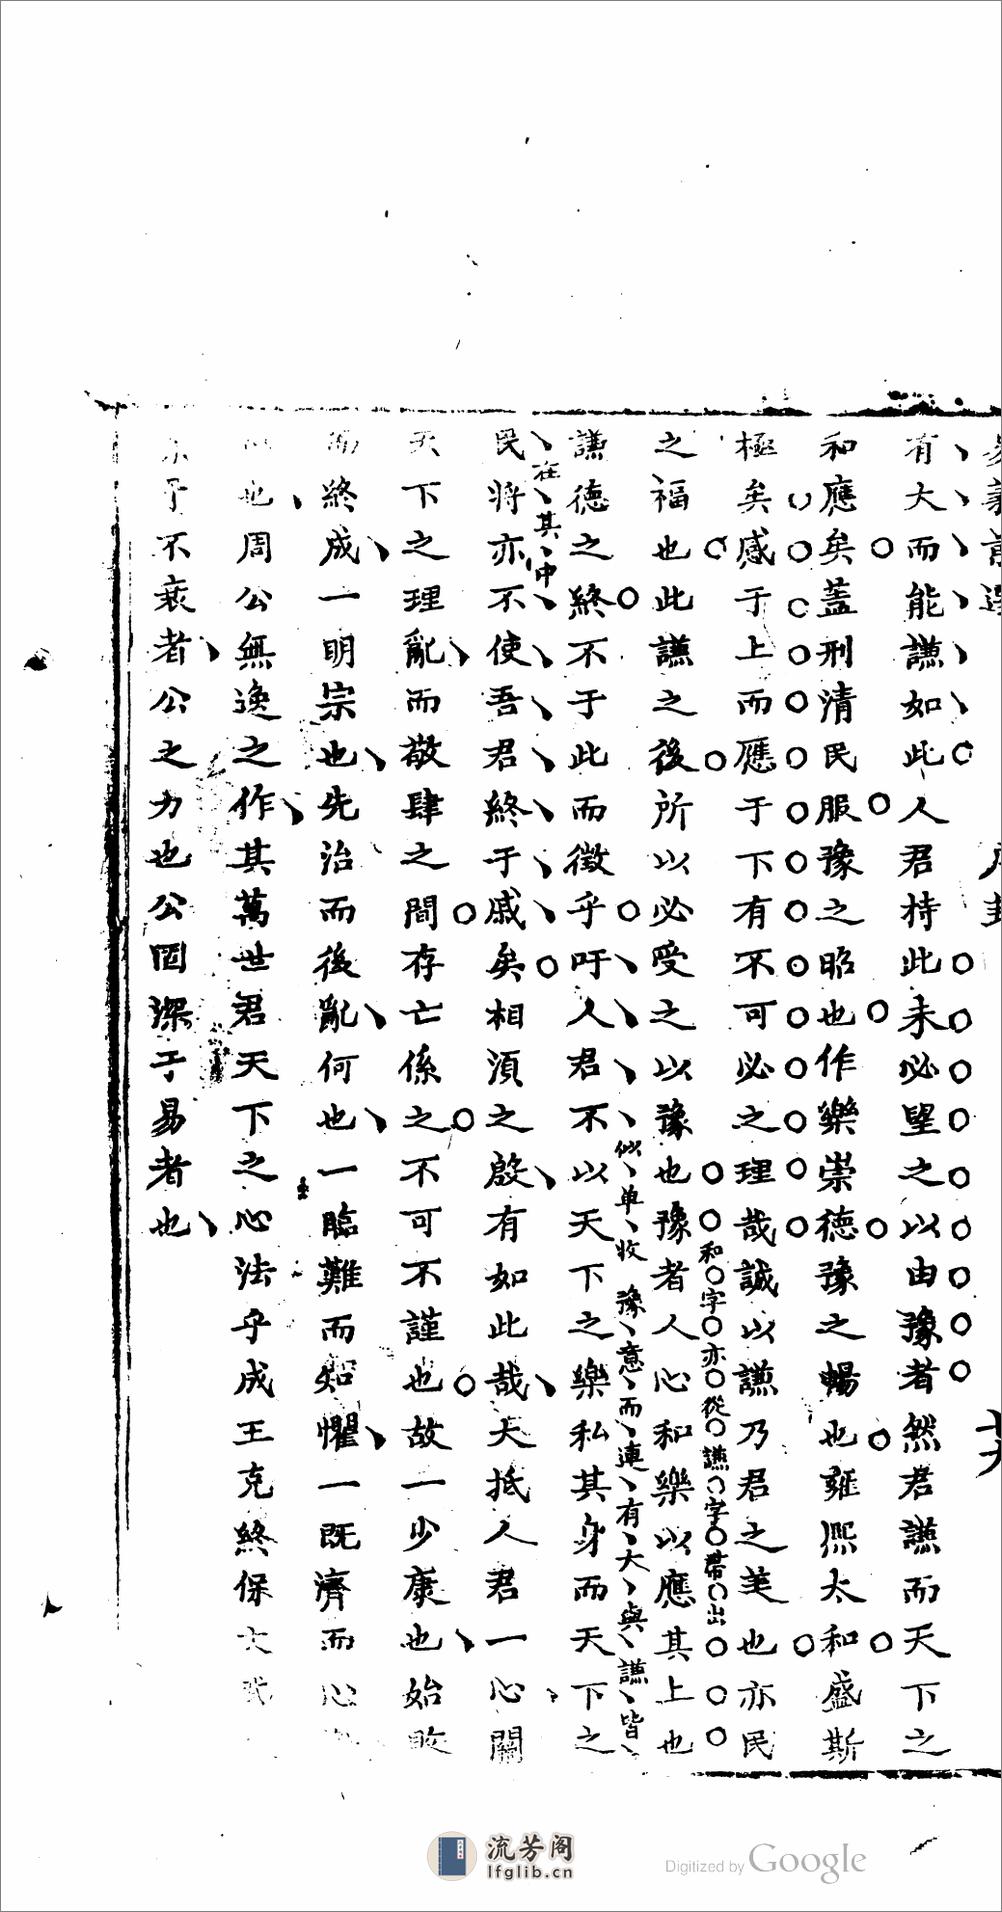 有大而能謙如此人君持此未必望之以由豫者然君謙而天下之
和應矣蓋刑清民服豫之昭也作樂崇德豫之暢也雍熙太和盛斯
極矣感于上而應于下有不可必之理哉誠以謙乃君之美也亦民
和字亦從謙字帶出
之福也此謙之後所以必受之以豫也豫者人心和樂以應其上也
似単收豫意而連有大與謙皆
謙德之終不于此而徵乎吁人君不以天下之樂私其身而天下之
在其中
民將亦不使吾君終于戚矣相須之殷有如此哉大抵人君一心關
天下之理亂而敬肆之間存亡係之不可不謹也故一少康也始敗
而終成一明宗也先治而後亂何也一臨難而知懼一既濟而心
也周公無逸之作其萬世君天下之心法乎成王克終保文武
于不衰者公之力也公固深于易者也
流芳阁
lfglib.cn
Digitized by Google